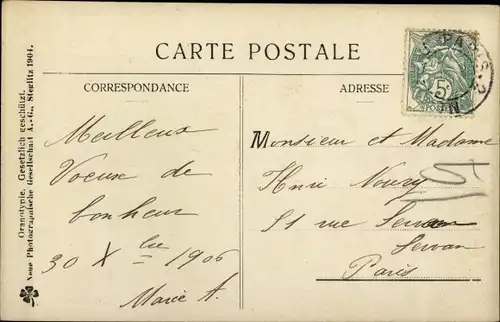 CARTE POSTALE
CORRESPONDANCE
ADRESSE
Meilleurs
Voeux de
bonheur
30 X bre 1906
Marie A.
Monsieur et Madame
Henri Noury
51 rue Servan
Servan
Paris
Oranotypie. Gesetzlich geschützt.
Neue Photographische Gesellschaft A.-G., Steglitz 1904.